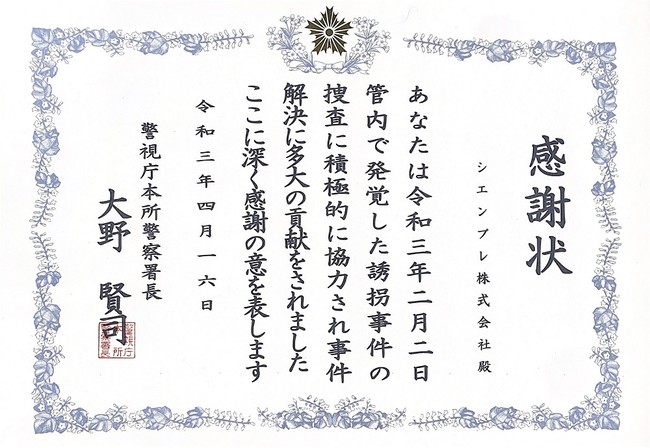 感謝状
シエンプレ株式会社殿
あなたは令和三年二月二日
管内で発覚した誘拐事件の
捜査に積極的に協力され事件
解決に多大の貢献をされました
ここに深く感謝の意を表します
令和三年四月一六日
警視庁本所警察署長
大野賢司